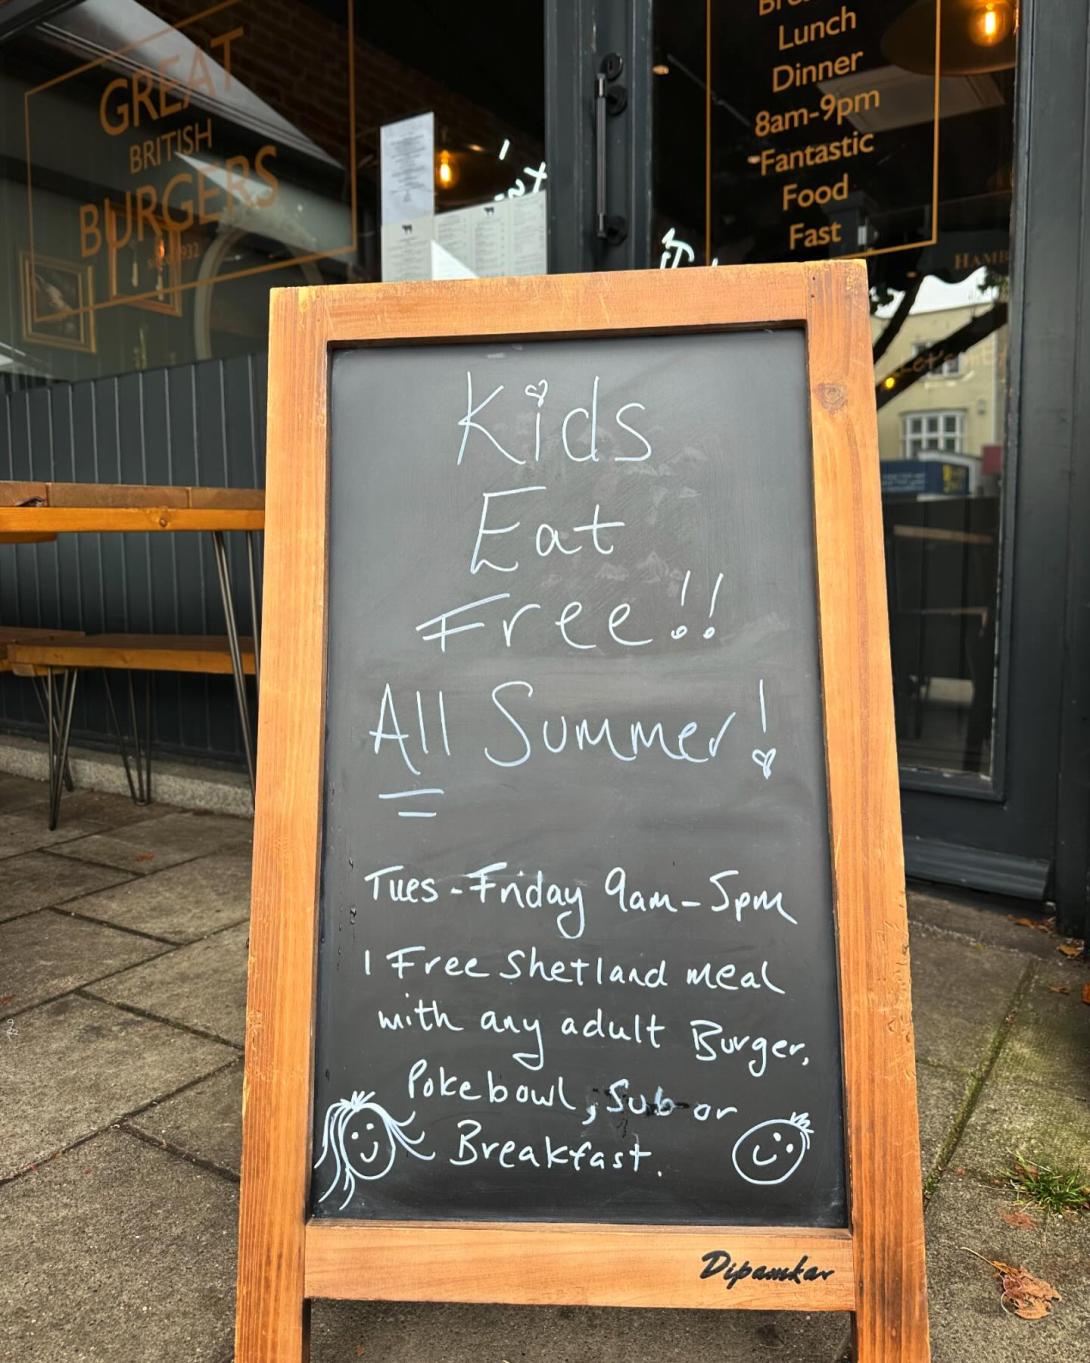 GREAT
BRITISH
BURGERS
Lunch
Dinner
8am-9pm
Fantastic
Food
Fast
Kids
Eat
Free!!
All Summer!
Tues-Friday 9am-5pm
1 Free Shetland meal
with any adult Burger,
Pokebowl, Sub or
Breakfast.
Dipamkar